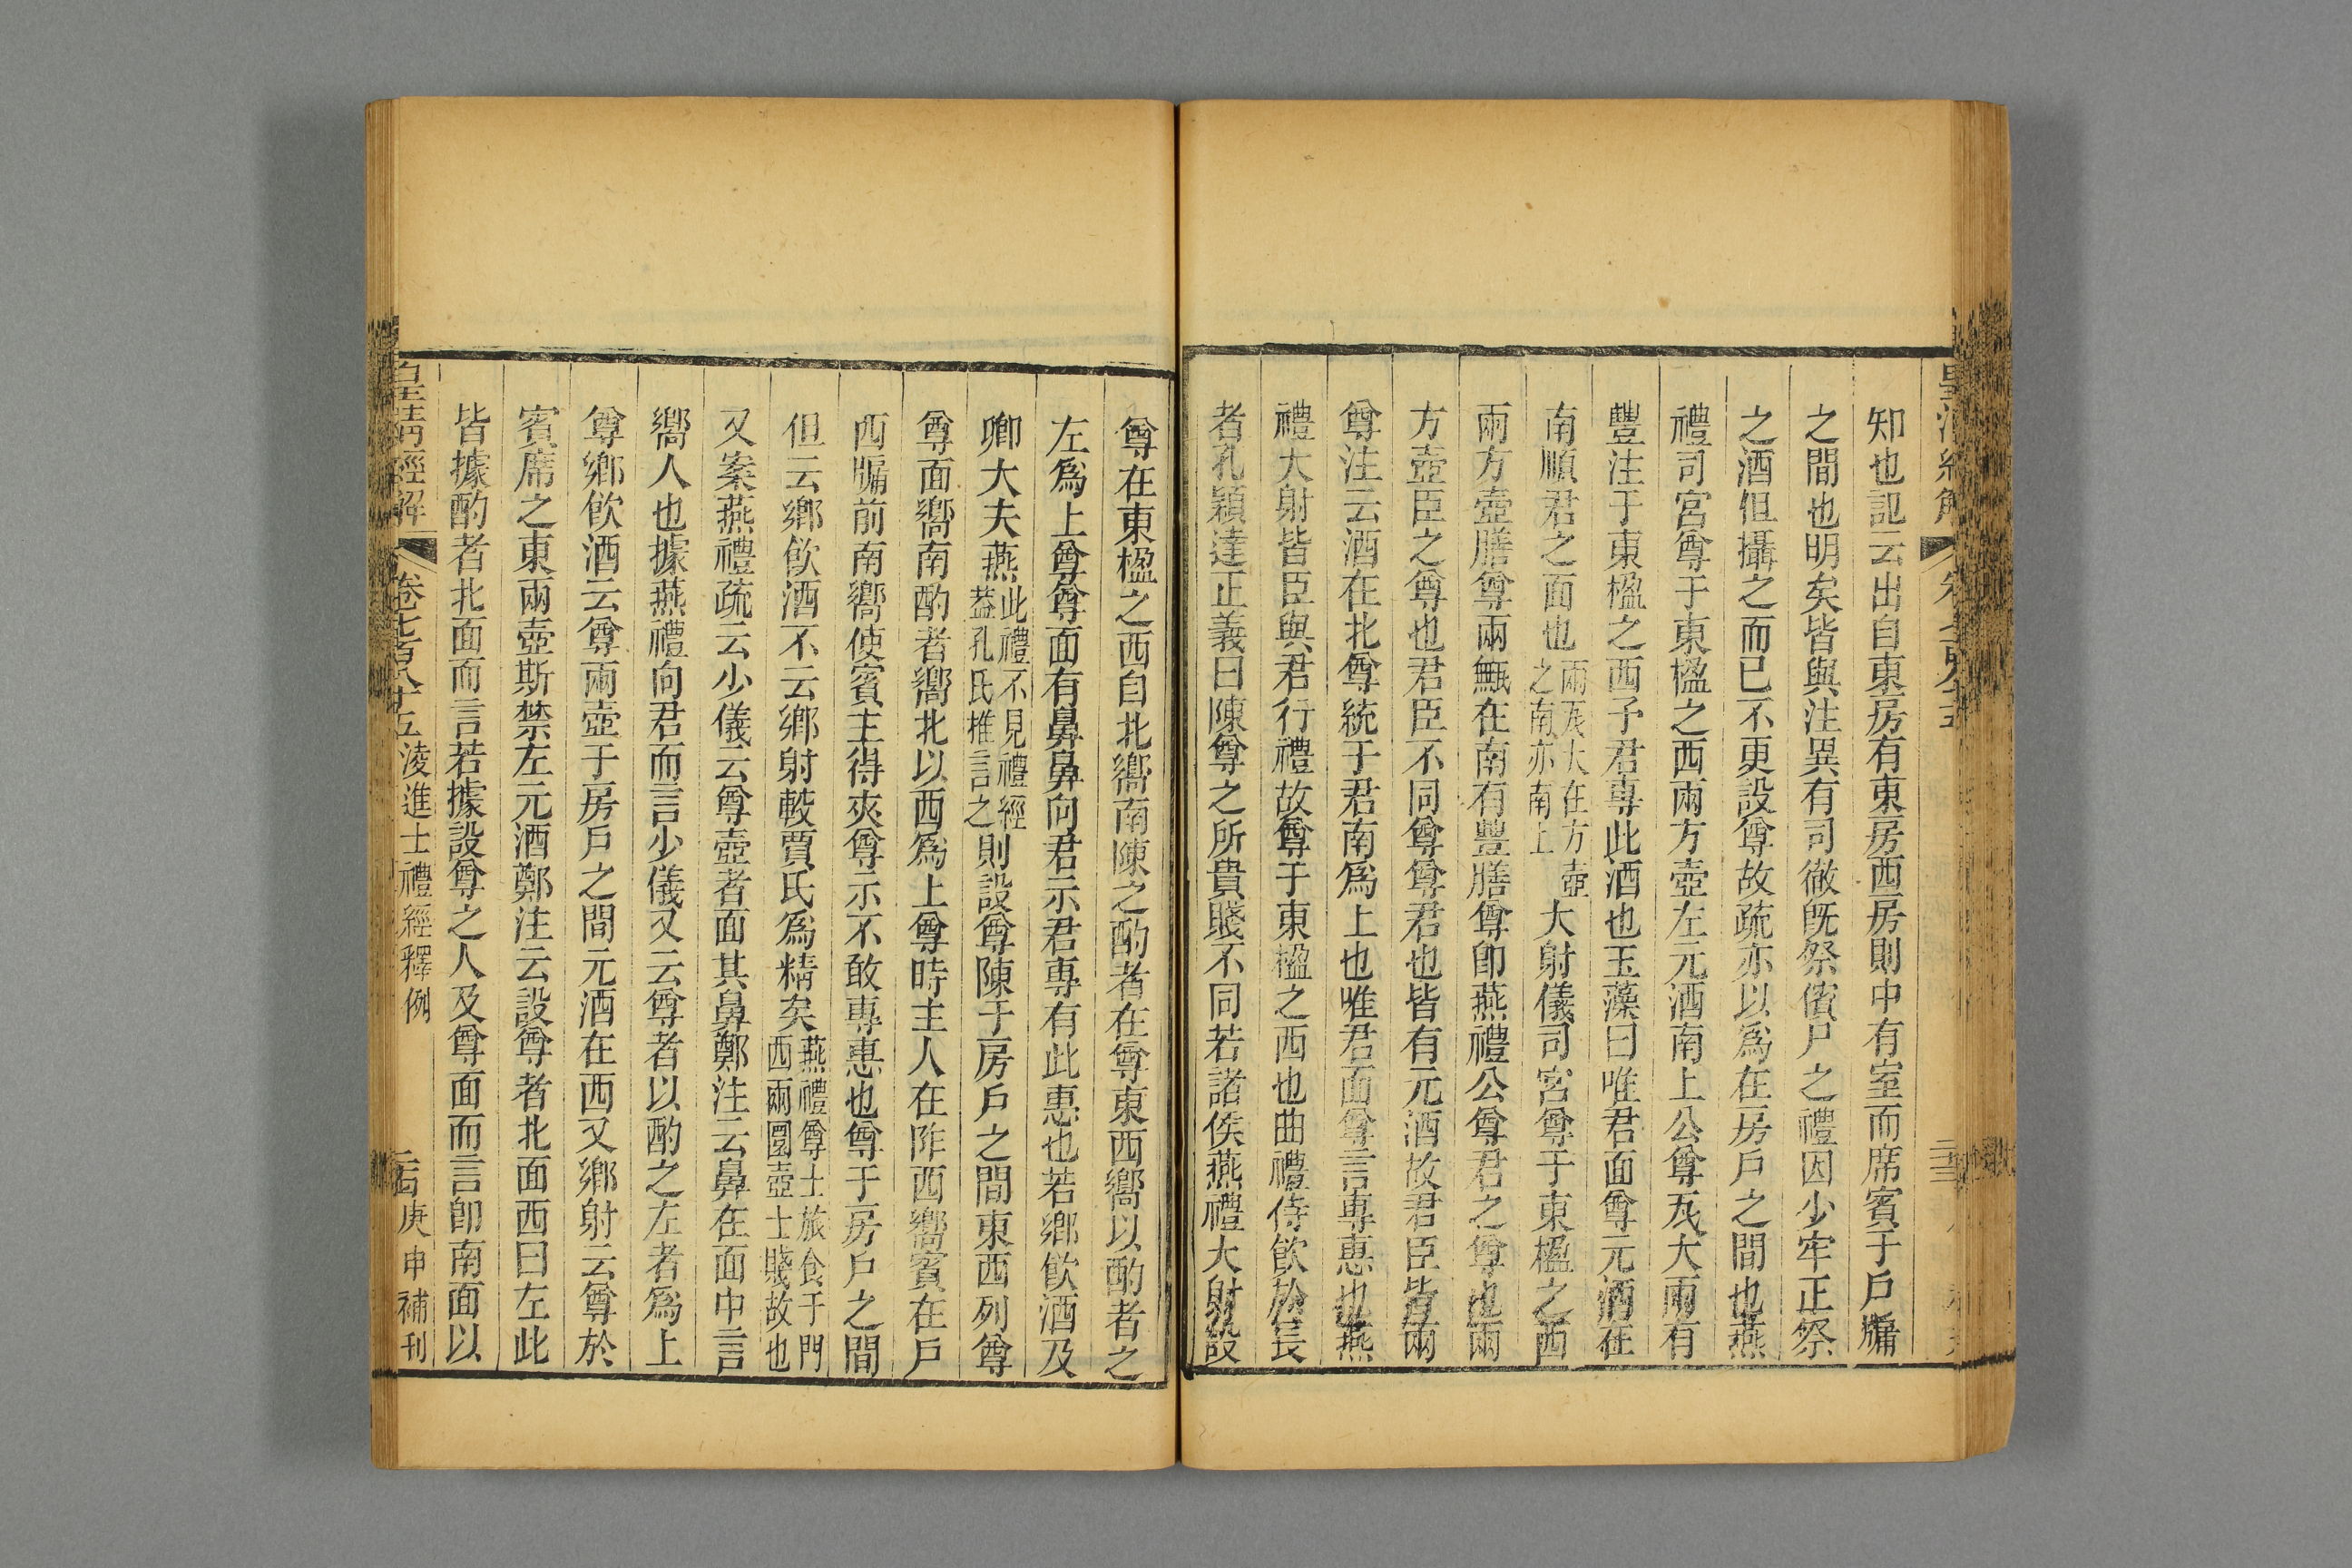 知也記云出自東房有東房西房則中有室而席賓于戶牖
之間也明矣皆與注異有司徹旣祭儐尸之禮因少牢正祭
之酒但攝之而已不更設尊故疏亦以爲在房戶之間也燕
禮司宮尊于東楹之西兩方壺左元酒南上公尊瓦大兩有
豐注于東楹之西予君專此酒也玉藻曰唯君面尊元酒在
南順君之面也兩瓦大在方壺之南亦南上大射儀司宮尊于東楹之西
兩方壺膳尊兩甒在南有豐膳尊卽燕禮公尊君之尊也兩
方壺臣之尊也君臣不同尊尊君也皆有元酒故君臣皆兩
尊注云酒在北尊統于君南爲上也唯君面尊言專惠也燕
禮大射皆臣與君行禮故尊于東楹之西也曲禮侍飮於長
者孔穎達正義曰陳尊之所貴賤不同若諸侯燕禮大射設
尊在東楹之西自北嚮南陳之酌者在尊東西嚮以酌者之
左爲上尊尊面有鼻鼻向君示君專有此惠也若鄉飮酒及
卿大夫燕此禮不見禮經葢孔氏推言之則設尊陳于房戶之間東西列尊
尊面嚮南酌者嚮北以西爲上尊時主人在阼西嚮賓在戶
西牖前南嚮使賓主得夾尊示不敢專惠也尊于房戶之間
但云鄉飮酒不云鄉射較賈氏爲精矣燕禮尊士旅食于門西兩圜壺士賤故也
又案燕禮疏云少儀云尊壺者面其鼻鄭注云鼻在面中言
嚮人也據燕禮向君而言少儀又云尊者以酌之左者爲上
尊鄉飮酒云尊兩壺于房戶之間元酒在西又鄉射云尊於
賓席之東兩壺斯禁左元酒鄭注云設尊者北面西曰左此
皆據酌者北面而言若據設尊之人及尊面而言卽南面以
皇淸經解 卷七百八十五 淩進士禮經釋例 庚申補刊